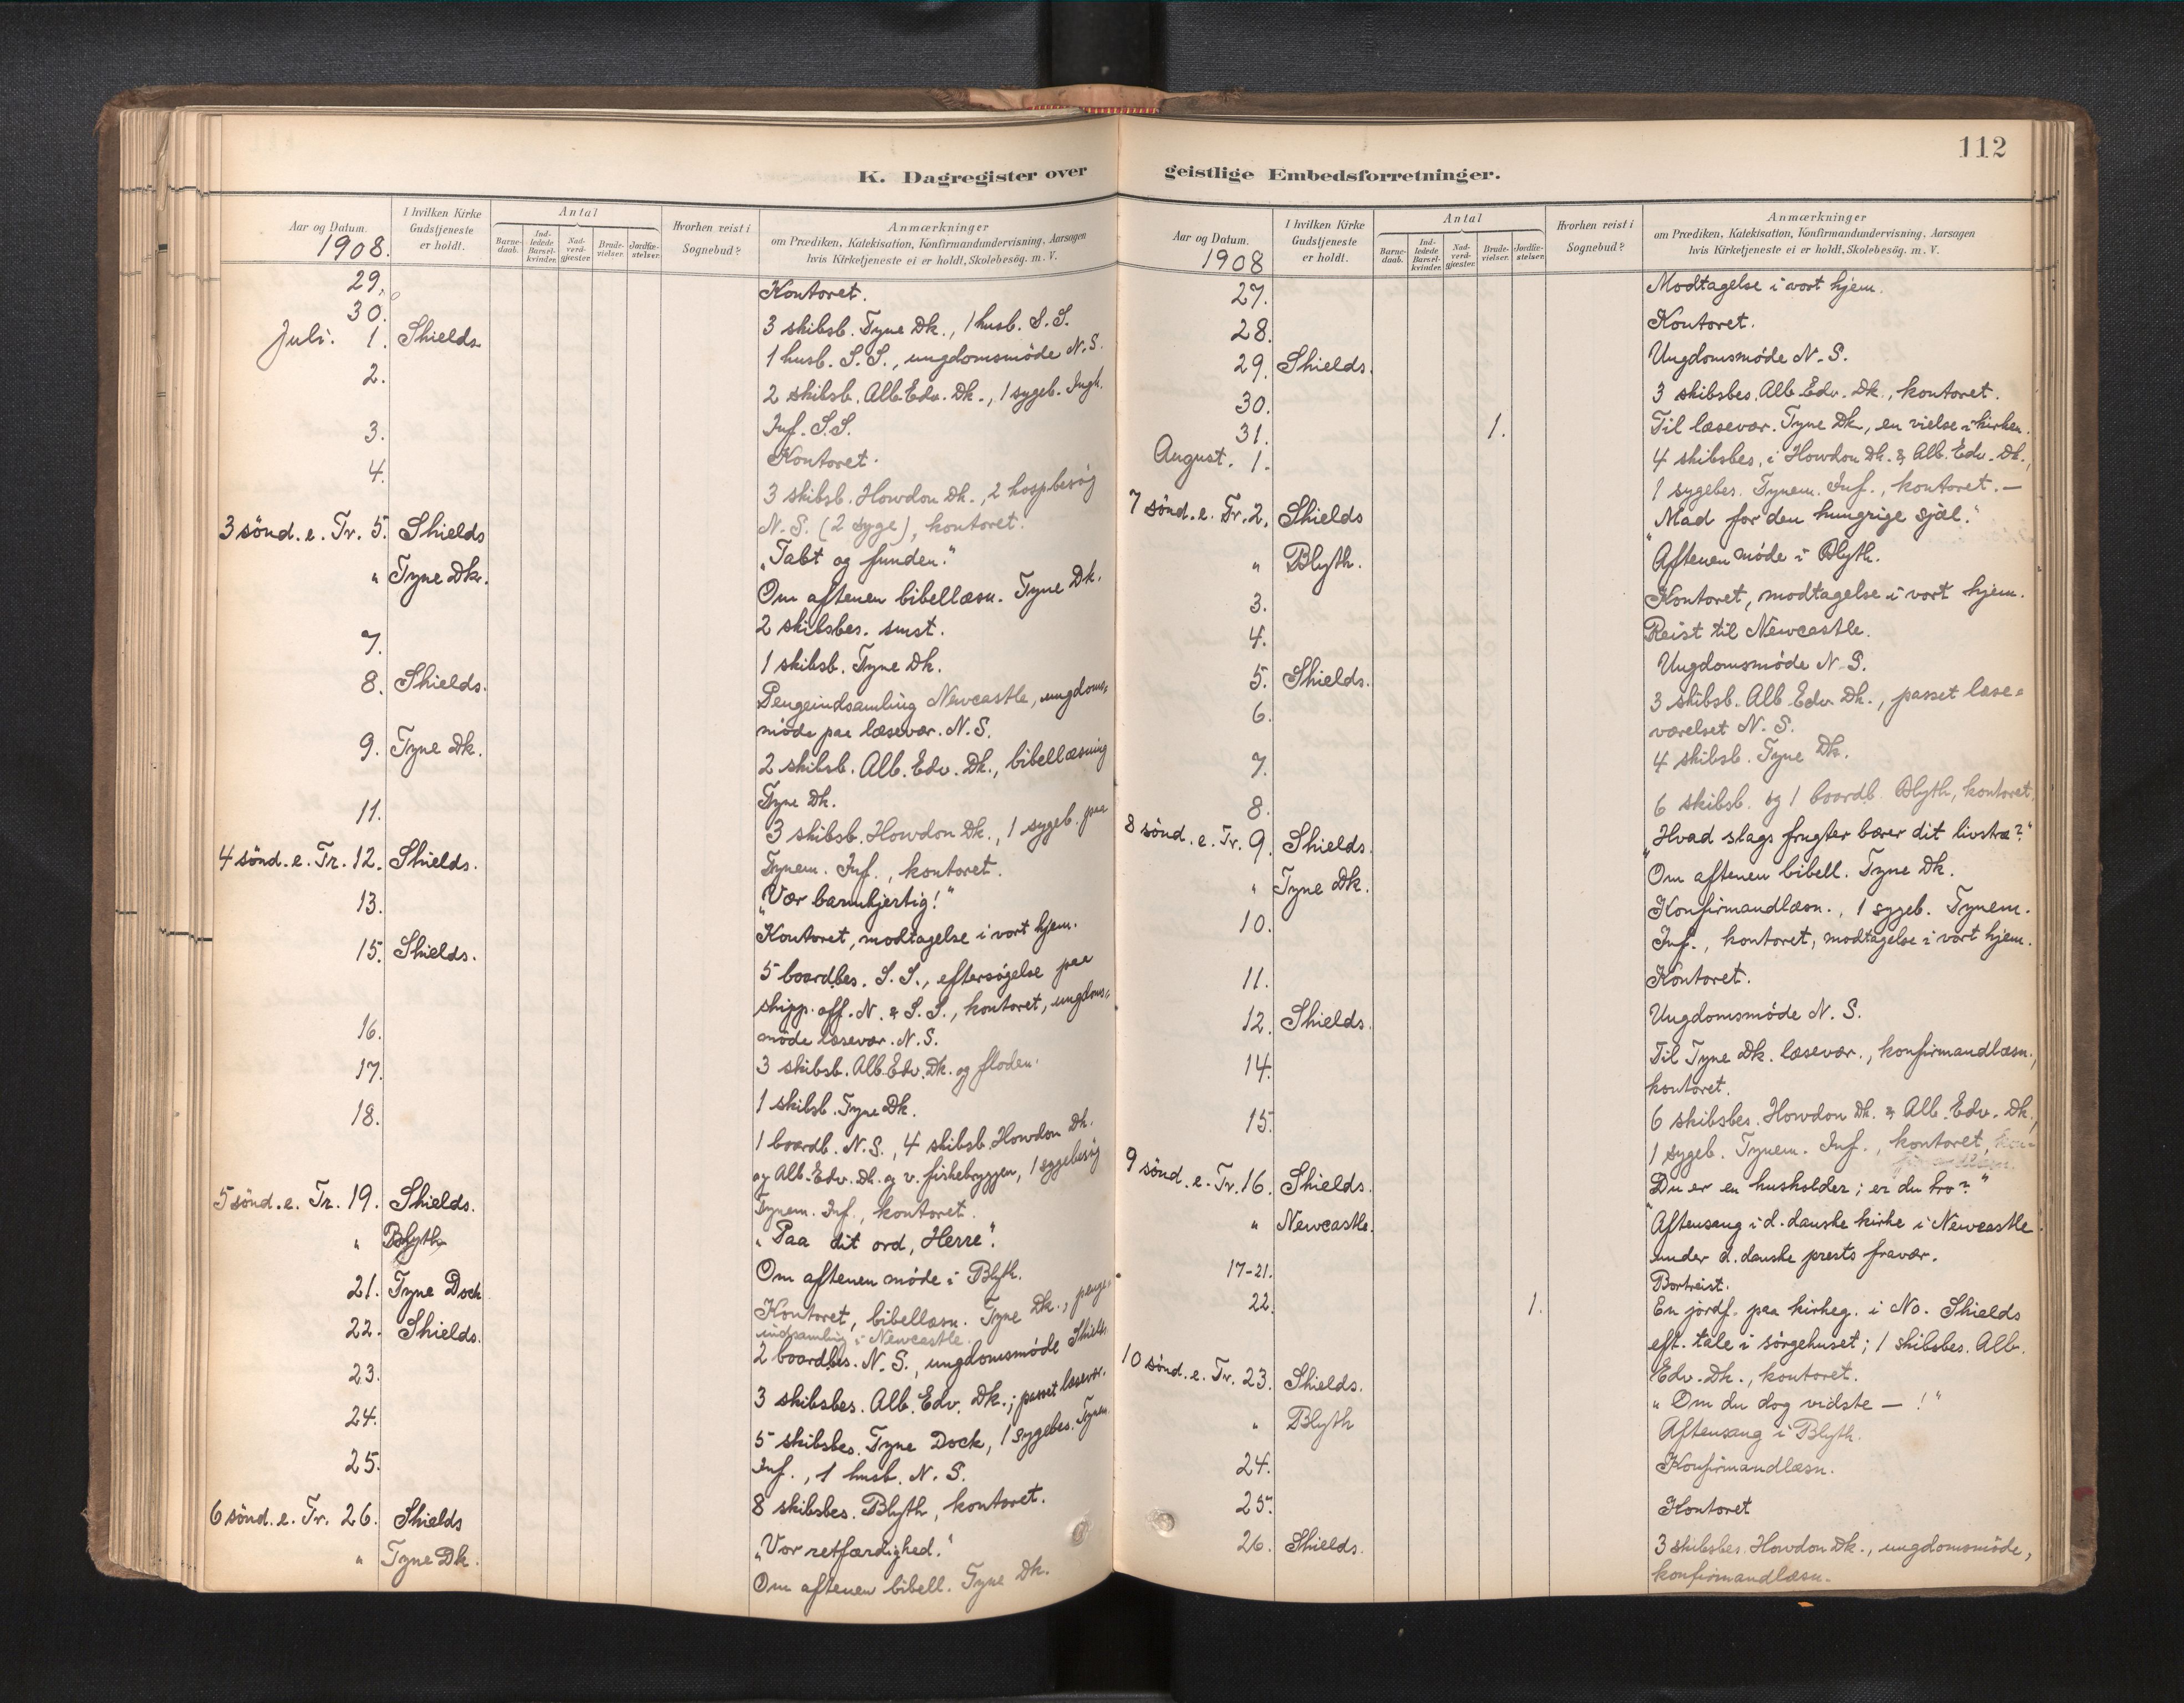 K. Dagregister over
Aar og Datum.
1908.
I hvilken Kirke Gudstjeneste er holdt.
Antal
Barne-daab.
Ind-ledede Barsel-kvinder.
Nad-verd-gjæster.
Brude-vielser.
Jordfæ-stelser.
Hvorhen reist i Sognebud?
Anmærkninger
om Prædiken, Katekisation, Konfirmandundervisning, Aarsagen
hvis Kirketjeneste ei er holdt, Skolebesög. m. V.
29. Kontoret.
30. 3 skibsb. Tyne Dk., 1 husb. S.S.
Juli. 1. Shields 1 husb. S.S., ungdomsmöde N.S.
2. 2 skibsb. Alb. Edv. Dk., 1 sygeb. Ingh.
Inf. S.S.
3. Kontoret.
4. 3 skibsb. Howdon Dk., 2 hospbesög
N.S. (2 syge), kontoret.
3 sönd. e. Tr. 5. Shields „Tabt og funden."
" Tyne Dk. Om aftenen bibellæsn. Tyne Dk.
2 skibsbes. smst.
7. 1 skibsb. Tyne Dk.
8. Shields. Pengeindsamling Newcastle, ungdoms-
möde paa læsevær. N.S.
9. Tyne Dk. 2 skibsb. Alb. Edv. Dk., bibellæsning
Tyne Dk.
11. 3 skibsb. Howdon Dk., 1 sygeb. paa
Tynem. Inf., kontoret.
4 sönd. e. Tr. 12. Shields. „Vær barmhjertig!"
13. Kontoret, modtagelse i vort hjem.
15. Shields. 5 boardbes. S.S., eftersögelse paa
shipp. off. N. & S.S., kontoret, ungdoms-
möde læsevær. N.S.
16. 3 skibsb. Alb. Edv. Dk. og floden.
17. 1 skibsb. Tyne Dk.
18. 1 boardb. N.S., 4 skibsb. Howdon Dk.
og Alb. Edv. Dk. og v. fiskebryggen, 1 sygebesög
Tynem. Inf., kontoret.
5 sönd. e. Tr. 19. Shields. „Paa dit ord, Herre".
" Blyth Om aftenen möde i Blyth.
21. Tyne Dock Kontoret, bibellæsn. Tyne Dk., penge-
indsamling i Newcastle.
22. Shields. 2 boardbes. N.S., ungdomsmöde Shields
23. 3 skibsbes. Alb. Edv. Dk.; passet læsevær.
24. 5 skibsbes. Tyne Dock, 1 sygebes. Tynem.
Inf., 1 husb. N.S.
25. 8 skibsbes. Blyth, kontoret.
6 sönd. e. Tr. 26. Shields „Vor retfærdighed."
" Tyne Dk. Om aftenen bibell. Tyne Dk.
112
geistlige Embedsforretninger.
Aar og Datum.
1908
I hvilken Kirke Gudstjeneste er holdt.
Antal
Barne-daab.
Ind-ledede Barsel-kvinder.
Nad-verd-gjæster.
Brude-vielser.
Jordfæ-stelser.
Hvorhen reist i Sognebud?
Anmærkninger
om Prædiken, Katekisation, Konfirmandundervisning, Aarsagen
hvis Kirketjeneste ei er holdt, Skolebesög. m. V.
27. Modtagelse i vort hjem.
28. Kontoret.
29. Shields. Ungdomsmöde N.S.
30. 3 skibsbes. Alb. Edv. Dk., kontoret.
31. 1. Til læsevær. Tyne Dk., en vielse i kirken.
August. 1. 4 skibsbes. i Howdon Dk. & Alb. Edv. Dk.,
1 sygebes. Tynem. Inf., kontoret. —
7 sönd. e. Tr. 2. Shields „Mad for den hungrige sjæl."
" Blyth. Aftenmöde i Blyth.
3. Kontoret, modtagelse i vort hjem.
4. Reist til Newcastle.
5. Shields. Ungdomsmöde N.S.
6. 3 skibsb. Alb. Edv. Dk., passet læse-
værelset N.S.
7. 4 skibsb. Tyne Dk.
8. 6 skibsb. og 1 boardb. Blyth, kontoret.
8 sönd. e. Tr. 9. Shields. „Hvad slags frugter bærer dit livstræ?"
" Tyne Dk. Om aftenen bibell. Tyne Dk.
10. Konfirmandlæsn., 1 sygeb. Tynem.
Inf., kontoret, modtagelse i vort hjem.
11. Kontoret.
12. Shields. Ungdomsmöde N.S.
14. Til Tyne Dk. læsevær., konfirmandlæsn.,
kontoret.
15. 6 skibsbes. Howdon Dk. & Alb. Edv. Dk.,
1 sygeb. Tynem. Inf., kontoret,
9 sönd. e. Tr. 16. Shields. „Du er en husholder; er du tro?"
" Newcastle. Aftensang i d. danske kirke i Newcastle
under d. danske prests fravær.
17-21. Bortreist.
22. 1. En jordf. paa kirkeg. i No. Shields
eft. tale i sörgehuset; 1 skibsbes. Alb.
Edv. Dk., kontoret.
10 sönd. e. Tr. 23. Shields. „Om du dog vidste — !"
" Blyth Aftensang i Blyth.
24. Konfirmandlæsn.
25. Kontoret
26. Shields. 3 skibsbes. Howdon Dk., ungdomsmöde,
konfirmandlæsn.